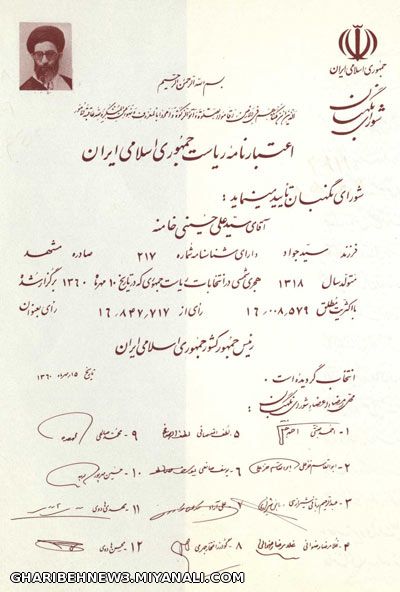 جمهوری اسلامی ایران
شورای نگهبان
بسم الله الرحمن الرحیم
اعتبارنامهٔ ریاست جمهوری اسلامی ایران
شورای نگهبان تأیید مینماید:
آقای سیّد علی حسینی خامنه
فرزند سیّد جواد دارای شناسنامه شماره ۲۱۷ صادره مشهد
متولد سال ۱۳۱۸ هجری شمسی در انتخابات ریاست جمهوری که در تاریخ ۱۰ مهرماه ۱۳۶۰ برگزار شد
با اکثریت مطلق ۱۶,۰۰۸,۵۷۹ رأی از ۱۶,۸۴۷,۷۱۷ رأی بعنوان
رئیس جمهور کشور جمهوری اسلامی ایران
انتخاب گردیده است.
تاریخ ۱۵ مهرماه ۱۳۶۰
محل مهر و امضاء اعضاء شورای نگهبان:
۱- احمد جنتی
۲- ابوالقاسم خزعلی
۳- عبدالرحیم ربانی شیرازی
۴- غلامرضا رضوانی
۵- لطف الله صافی
۶- یوسف صانعی
۷- علی آراد
۸- گودرز افتخار جهرمی
۹- محمد صالحی
۱۰- حسین مهرپور
۱۱- مهدی هادوی
۱۲- محسن هادوی
GHARIBEHNEW3.MIYANALI.COM